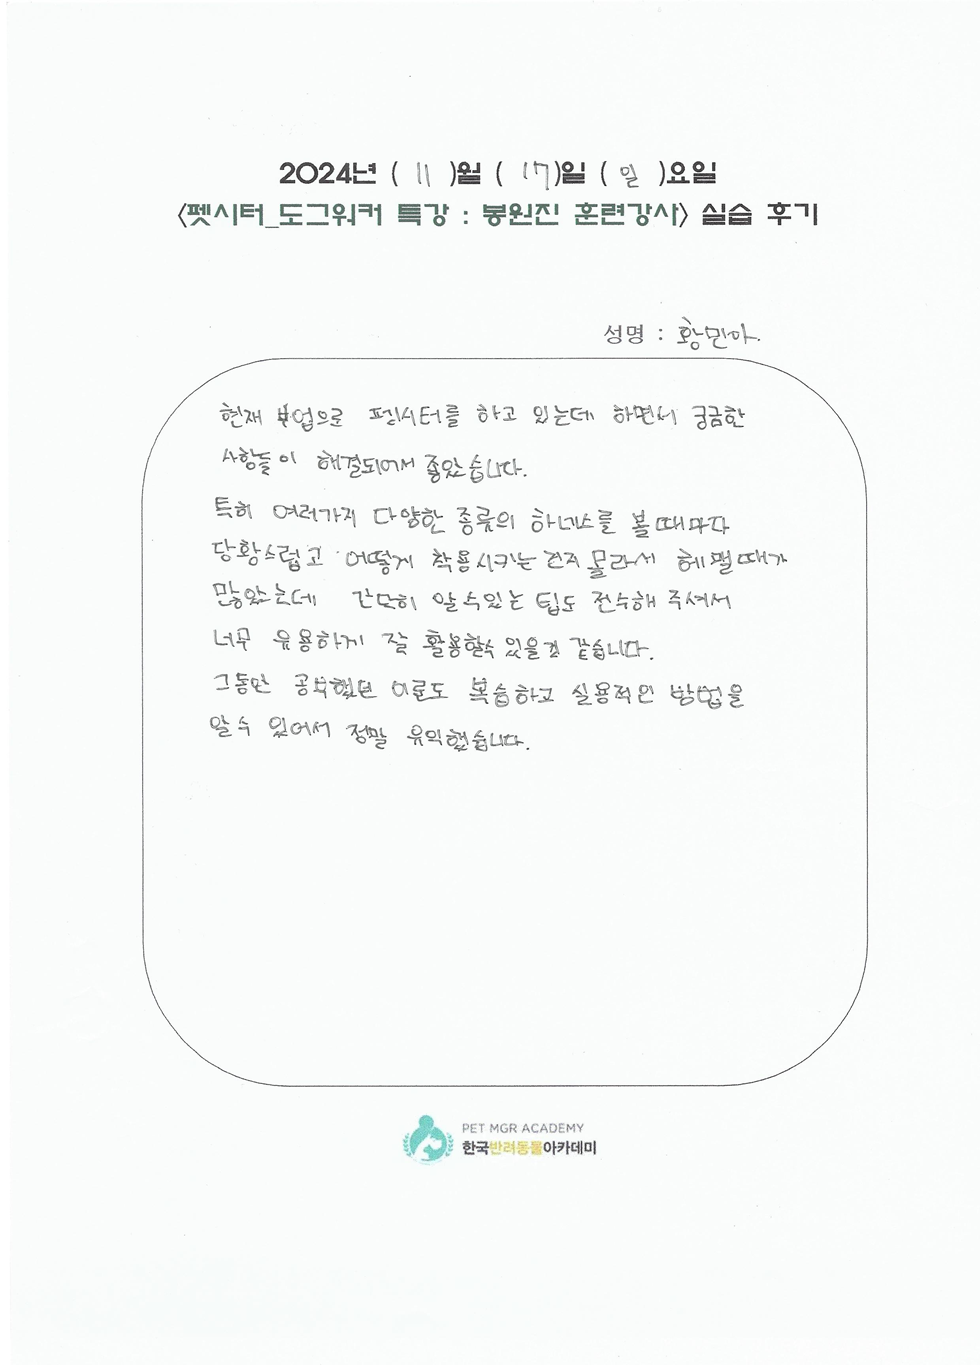 2024년 ( 11 )월 ( 17 )일 ( 일 )요일
<펫시터_도그워커 특강 : 봉원진 훈련강사> 실습 후기
성명 : 황민아.
현재 부업으로 펫시터를 하고 있는데 하면서 궁금한
사항들이 해결되어서 좋았습니다.
특히 여러가지 다양한 종류의 하네스를 볼때마다
당황스럽고 어떻게 착용시키는건지 몰라서 헤맬때가
많았는데 간단히 알수있는 팁도 전수해 주셔서
너무 유용하게 잘 활용할수 있을것 같습니다.
그동안 공부했던 이론도 복습하고 실용적인 방법을
알수 있어서 정말 유익했습니다.
PET MGR ACADEMY
한국반려동물아카데미